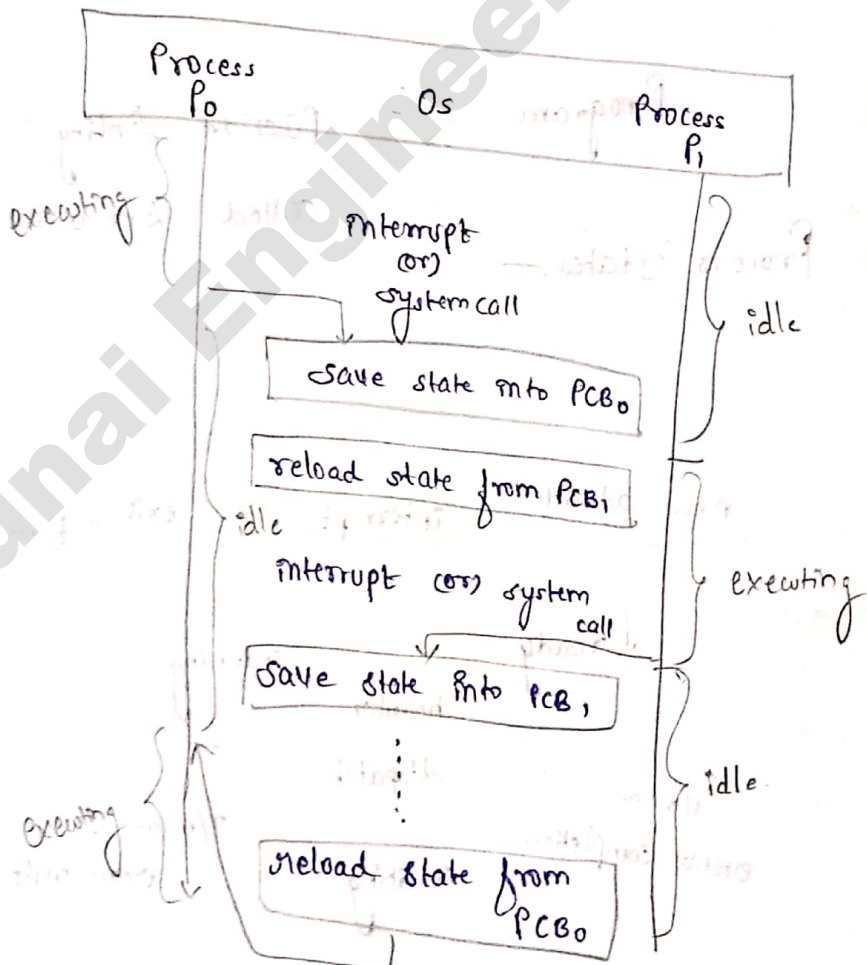 Process
P0
OS
Process
P1
executing
interrupt
(or)
system call
idle
save state into PCB0
reload state from PCB1
idle
executing
interrupt (or) system
call
save state into PCB1
idle
executing
reload state from
PCB0